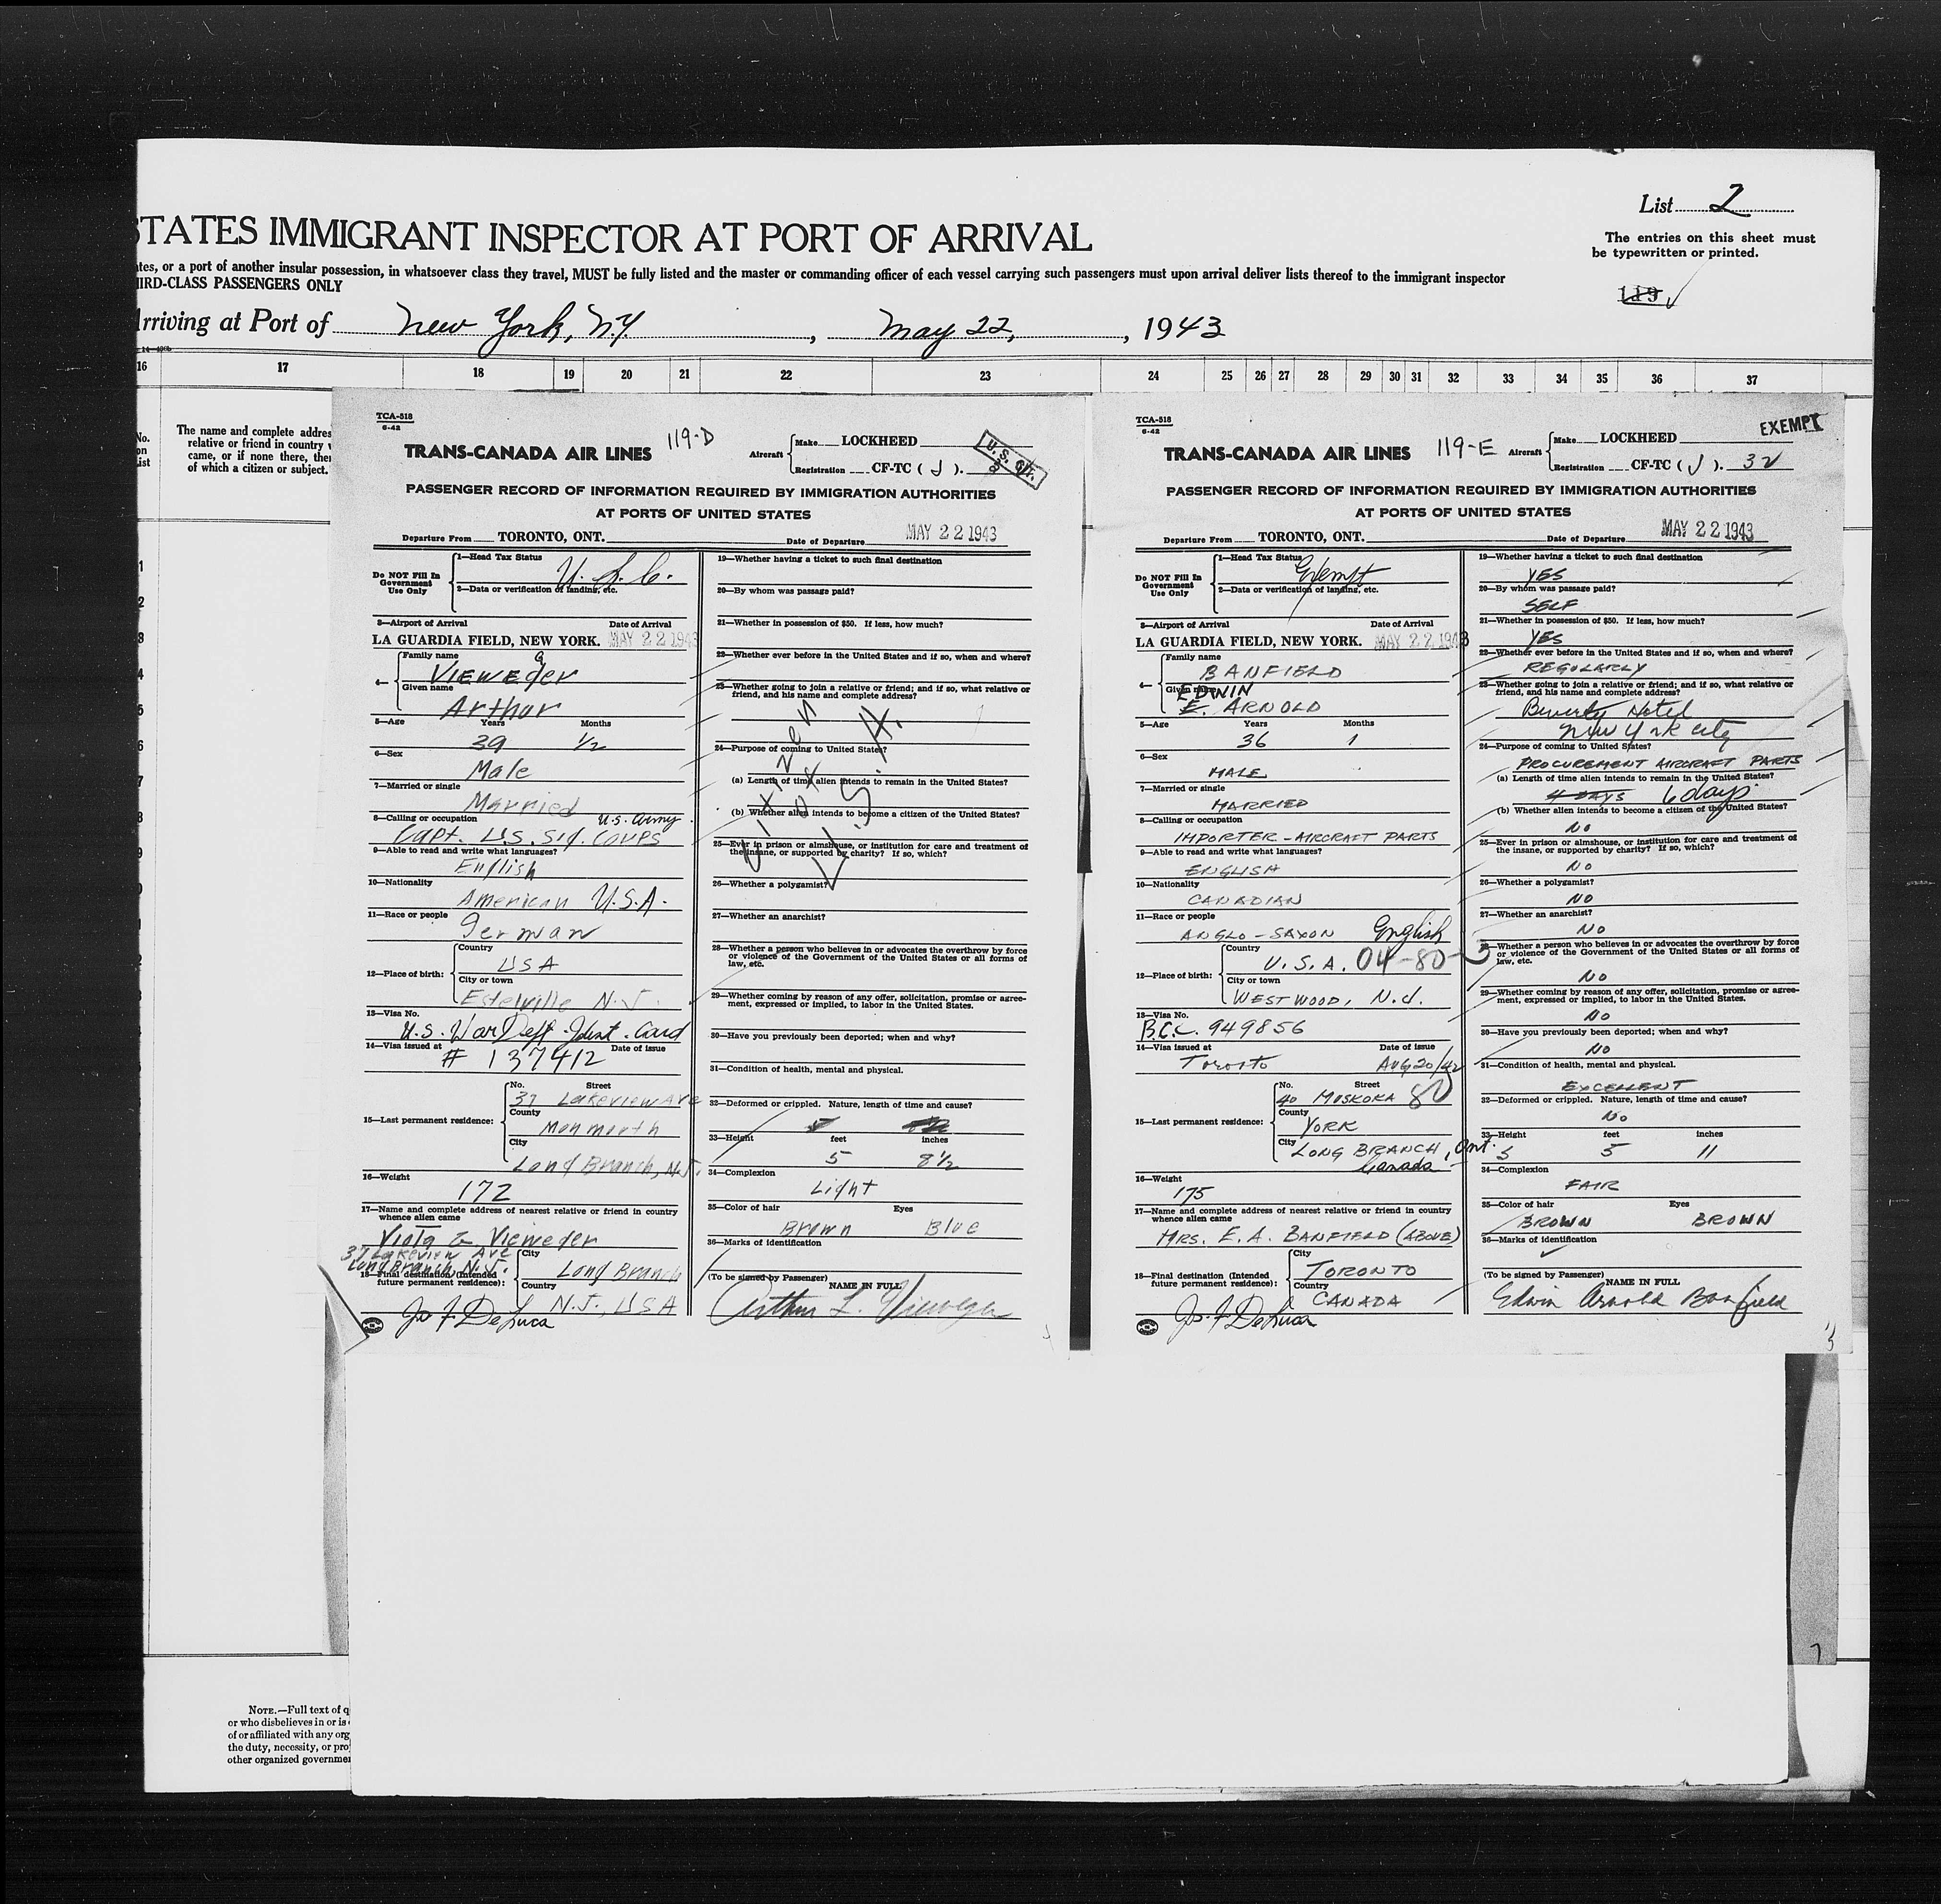 List 2
STATES IMMIGRANT INSPECTOR AT PORT OF ARRIVAL
The entries on this sheet must
be typewritten or printed.
ates, or a port of another insular possession, in whatsoever class they travel, MUST be fully listed and the master or commanding officer of each vessel carrying such passengers must upon arrival deliver lists thereof to the immigrant inspector
HIRD-CLASS PASSENGERS ONLY
119
Arriving at Port of New York, N.Y., May 22, 1943
16 17 18 19 20 21 22 23 24 25 26 27 28 29 30 31 32 33 34 35 36 37
No.
on
List
The name and complete addres
relative or friend in country
came, or if none there, the
of which a citizen or subject.
TCA-518
6-42
TRANS-CANADA AIR LINES 119-D
Aircraft Make LOCKHEED
Registration CF-TC (J).
U.S. Cit.
PASSENGER RECORD OF INFORMATION REQUIRED BY IMMIGRATION AUTHORITIES
AT PORTS OF UNITED STATES
Departure From TORONTO, ONT. Date of Departure MAY 22 1943
Do NOT Fill In
Government
Use Only
1—Head Tax Status
U.S.C.
2—Data or verification of landing, etc.
3—Airport of Arrival Date of Arrival
LA GUARDIA FIELD, NEW YORK. MAY 22 1943
4— Family name
VIEWEger
g
Given name
Arthur
5—Age Years Months
39 1/2
6—Sex
Male
7—Married or single
Married
8—Calling or occupation U.S. Army
Capt. U.S. Sig. Corps
9—Able to read and write what languages?
English
10—Nationality
American U.S.A.
11—Race or people
German
12—Place of birth:
Country
USA
City or town
Estelville N.J.
13—Visa No.
U.S. War Dept. Ident. Card
14—Visa issued at Date of issue
# 137412
15—Last permanent residence:
No. Street
37 Lakeview Ave
County
Monmouth
City
Long Branch, N.J.
16—Weight
172
17—Name and complete address of nearest relative or friend in country
whence alien came
Viola G Vieweger
37 Lakeview Ave
Long Branch, N.J.
18—Final destination (Intended
future permanent residence):
City
Long Branch
Country
N.J. USA
Jos. F DeLuca
19—Whether having a ticket to such final destination
20—By whom was passage paid?
21—Whether in possession of $50. If less, how much?
22—Whether ever before in the United States and if so, when and where?
23—Whether going to join a relative or friend; and if so, what relative or
friend, and his name and complete address?
24—Purpose of coming to United States?
(a) Length of time alien intends to remain in the United States?
(b) Whether alien intends to become a citizen of the United States?
Citizen
of
U.S.A.
25—Ever in prison or almshouse, or institution for care and treatment of
the insane, or supported by charity? If so, which?
26—Whether a polygamist?
27—Whether an anarchist?
28—Whether a person who believes in or advocates the overthrow by force
or violence of the Government of the United States or all forms of
law, etc.
29—Whether coming by reason of any offer, solicitation, promise or agree-
ment, expressed or implied, to labor in the United States.
30—Have you previously been deported; when and why?
31—Condition of health, mental and physical.
32—Deformed or crippled. Nature, length of time and cause?
33—Height feet inches
5 8 1/2
34—Complexion
Light
35—Color of hair Eyes
Brown Blue
36—Marks of identification
(To be signed by Passenger) NAME IN FULL
Arthur L. Vieweger
TCA-518
6-42
EXEMPT
TRANS-CANADA AIR LINES 119-E
Aircraft Make LOCKHEED
Registration CF-TC (J). 32
PASSENGER RECORD OF INFORMATION REQUIRED BY IMMIGRATION AUTHORITIES
AT PORTS OF UNITED STATES
Departure From TORONTO, ONT. Date of Departure MAY 22 1943
Do NOT Fill In
Government
Use Only
1—Head Tax Status
Exempt
2—Data or verification of landing, etc.
3—Airport of Arrival Date of Arrival
LA GUARDIA FIELD, NEW YORK. MAY 22 1943
4— Family name
BANFIELD
Given name
EDWIN
E. ARNOLD
5—Age Years Months
36 1
6—Sex
MALE
7—Married or single
MARRIED
8—Calling or occupation
IMPORTER-AIRCRAFT PARTS
9—Able to read and write what languages?
ENGLISH
10—Nationality
CANADIAN
11—Race or people
ANGLO-SAXON English
12—Place of birth:
Country
U.S.A. 04-80-
City or town
WESTWOOD, N.J.
13—Visa No.
B.C.C. 949856
14—Visa issued at Date of issue
Toronto Aug 20/42
15—Last permanent residence:
No. Street
40 MUSKOKA 80
County
YORK
City
LONG BRANCH, Ont.
Canada
16—Weight
175
17—Name and complete address of nearest relative or friend in country
whence alien came
MRS. E. A. BANFIELD (ABOVE)
18—Final destination (Intended
future permanent residence):
City
TORONTO
Country
CANADA
Jos. F DeLuca
19—Whether having a ticket to such final destination
YES
20—By whom was passage paid?
SELF
21—Whether in possession of $50. If less, how much?
YES
22—Whether ever before in the United States and if so, when and where?
REGULARLY
23—Whether going to join a relative or friend; and if so, what relative or
friend, and his name and complete address?
Beverly Hotel
New York City
24—Purpose of coming to United States?
PROCUREMENT AIRCRAFT PARTS
(a) Length of time alien intends to remain in the United States?
4 DAYS 6 days
(b) Whether alien intends to become a citizen of the United States?
NO
25—Ever in prison or almshouse, or institution for care and treatment of
the insane, or supported by charity? If so, which?
NO
26—Whether a polygamist?
NO
27—Whether an anarchist?
NO
28—Whether a person who believes in or advocates the overthrow by force
or violence of the Government of the United States or all forms of
law, etc.
NO
29—Whether coming by reason of any offer, solicitation, promise or agree-
ment, expressed or implied, to labor in the United States.
NO
30—Have you previously been deported; when and why?
NO
31—Condition of health, mental and physical.
EXCELLENT
32—Deformed or crippled. Nature, length of time and cause?
NO
33—Height feet inches
5 5 11
34—Complexion
FAIR
35—Color of hair Eyes
BROWN BROWN
36—Marks of identification
(To be signed by Passenger) NAME IN FULL
Edwin Arnold Banfield
NOTE.—Full text of q
or who disbelieves in or is
of or affiliated with any org
the duty, necessity, or pro
other organized governme